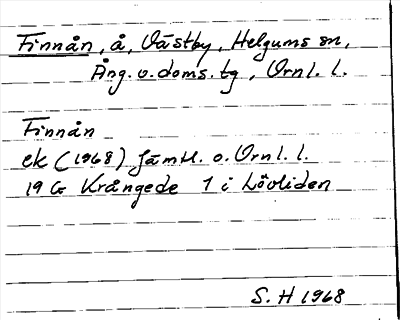 Finnån, å, Västby, Helgums sn,
Ång. v. doms. tg, Vrnl. l.
Finnån
ek (1968) Jämtl. o. Vrnl. l.
19 G Krångede 1 i Lövliden
S. H 1968